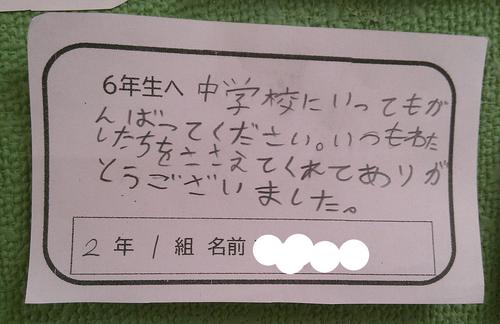 6年生へ 中学校にいってもが
んばってください。いつもわた
したちをささえてくれてありが
とうございました。
2年 1組 名前